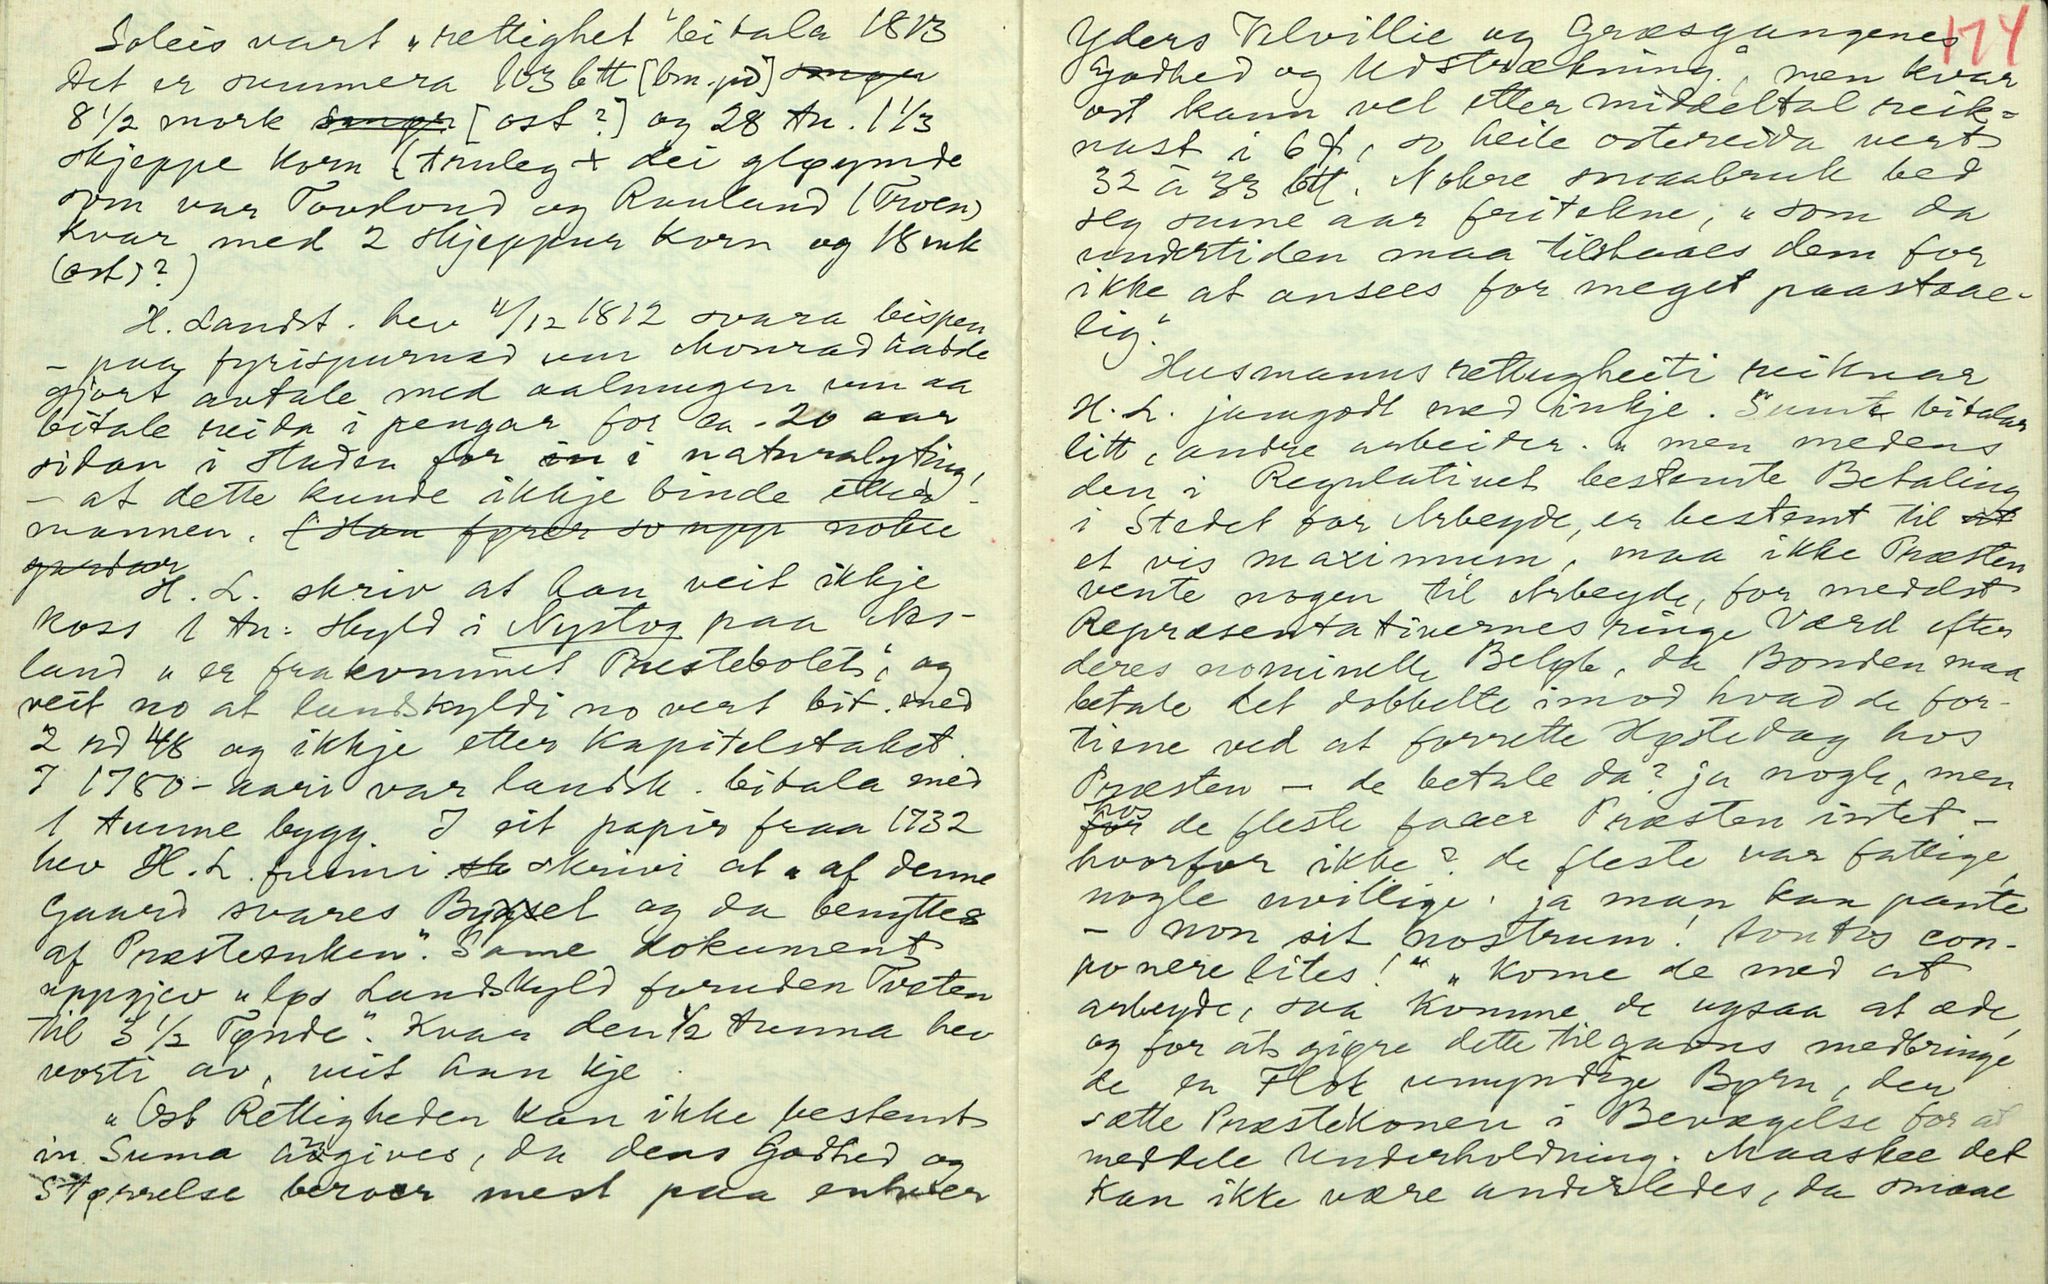 Soleis vart „rettighet“ bitala 1813
Det er summera 103 btt [bm. pd] smør
8 1/2 mork smør [ost?] og 28 tn. 1 1/3
skjeppe korn (truleg + dei gløymde
som var Tovslond og Rauland (Troen)
kvar med 2 skjeppur korn og 18 mk
(ost)?)
H. Landst. hev 4/12 1812 svara bispen
– paa fyrispurnad um Monrad hadde
gjort avtale med aalmugen um aa
bitale reida i pengar for ca. 20 aar
sidan i staden for in i naturalyting,
– at dette kunde ikkje binde etter-
mannen. (Han fører so upp nokre
gardar
H. L. skriv at han veit ikkje
koss 1 tn. skyld i Nystog paa Aas-
land „er frakommet Prestebolet“, og
veit no at landskyldi no vert bit. med
2 rd 48 og ikkje etter kapitelstakst.
I 1780-aari var landsk. bitala med
1 tunne bygg. I eit papir fraa 1732
hev H. L. funni sk skrivi at „af denne
Gaard svares Bygsel og da benyttes
af Præsteenken“. Same dokument
uppgjev „lps Landskyld foruden Tveten
til 3 1/2 Tønde“. Kvar den 1/2 tunna hev
vorti av, veit han kje.
„Ost Rettigheden kan ikke bestemt
in Suma angives, da dens Godhed og
Størrelse beroer mest paa enhver
174
Yders Velvillie og Græsgangenes
Godhed og Udstrækning“, men kvar
ost kann vel etter middeltal reik-
nast i 6 ℔, so heile ostereida vert
32 à 33 btt. Nokre smaabruk bed
seg sume aar fritekne, „som da
undertiden maa tilstaaes dem for
ikke at ansees for meget paastaae-
lig“.
Husmannsrettugheiti reiknar
H. L. jamgodt med inkje. Sume bitalar
litt, andre arbeider. „men medens
den i Regulativet bestemte Betaling
i Stedet for Arbeyde, er bestemt til et
et vis maximum, maa ikke Præsten
vente nogen til Arbeyde, for meddelst
Repræsentativernes ringe Værd efter
deres nominelle Beløb, da Bonden maa
betale det dobbelte imod hvad de for-
tiene ved at forrette Høstedag hos
Præsten – de betale da? ja nogle, men
for hos de fleste faaer Præsten intet –
hvorfor ikke? de fleste var fattige,
nogle uvillige. ja man kan pante
– non sit nostrum! tantas con-
ponere lites!“ „Kome de med at
arbeyde, saa komme de ogsaa at æde,
og for at giøre dette tilgavns medbringe
de en Flok umyndige Børn, der
sætte Præstekonen i Bevægelse for at
meddele Underholdning. Maaskee det
kan ikke være anderledes, da smaae